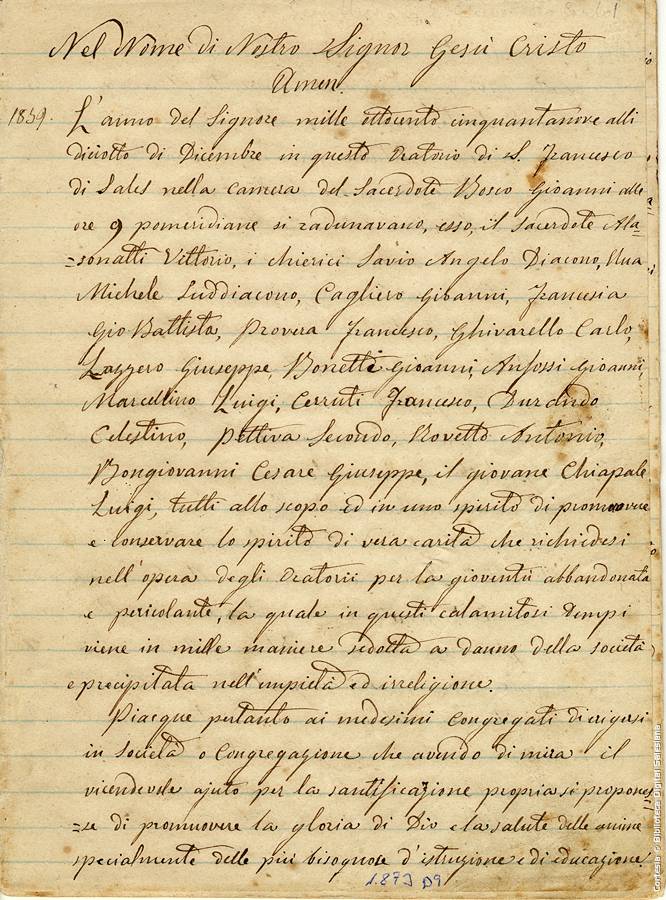 Nel Nome di Nostro Signor Gesù Cristo
Amen.
1859. L'anno del Signore mille ottocento cinquantanove alli
diciotto di Dicembre in questo Oratorio di S. Francesco
di Sales nella camera del Sacerdote Bosco Gioanni alle
ore 9 pomeridiane si radunavano, esso, il Sacerdote Ala=
=sonatti Vittorio, i chierici Savio Angelo Diacono, Rua
Michele Suddiacono, Cagliero Gioanni, Francesia
Gio Battista, Provera Francesco, Ghivarello Carlo,
Lazzero Giuseppe, Bonetti Gioanni, Anfossi Gioanni,
Marcellino Luigi, Cerruti Francesco, Durando
Celestino, Pettiva Secondo, Rovetto Antonio,
Bongiovanni Cesare Giuseppe, il giovane Chiapale
Luigi, tutti allo scopo ed in uno spirito di promuovere
e conservare lo spirito di vera carità che richiedesi
nell'opera degli Oratorii per la gioventù abbandonata
e pericolante, la quale in questi calamitosi tempi
viene in mille maniere sedotta a danno della società
e precipitata nell'empietà ed irreligione.
Piacque pertanto ai medesimi Congregati di erigersi
in Società o Congregazione che avendo di mira il
vicendevole ajuto per la santificazione propria si propones
=se di promuovere la gloria di Dio e la salute delle anime
specialmente delle più bisognose d'istruzione e di educazione
1873 D9
Cortesía © Biblioteca Digital Salesiana